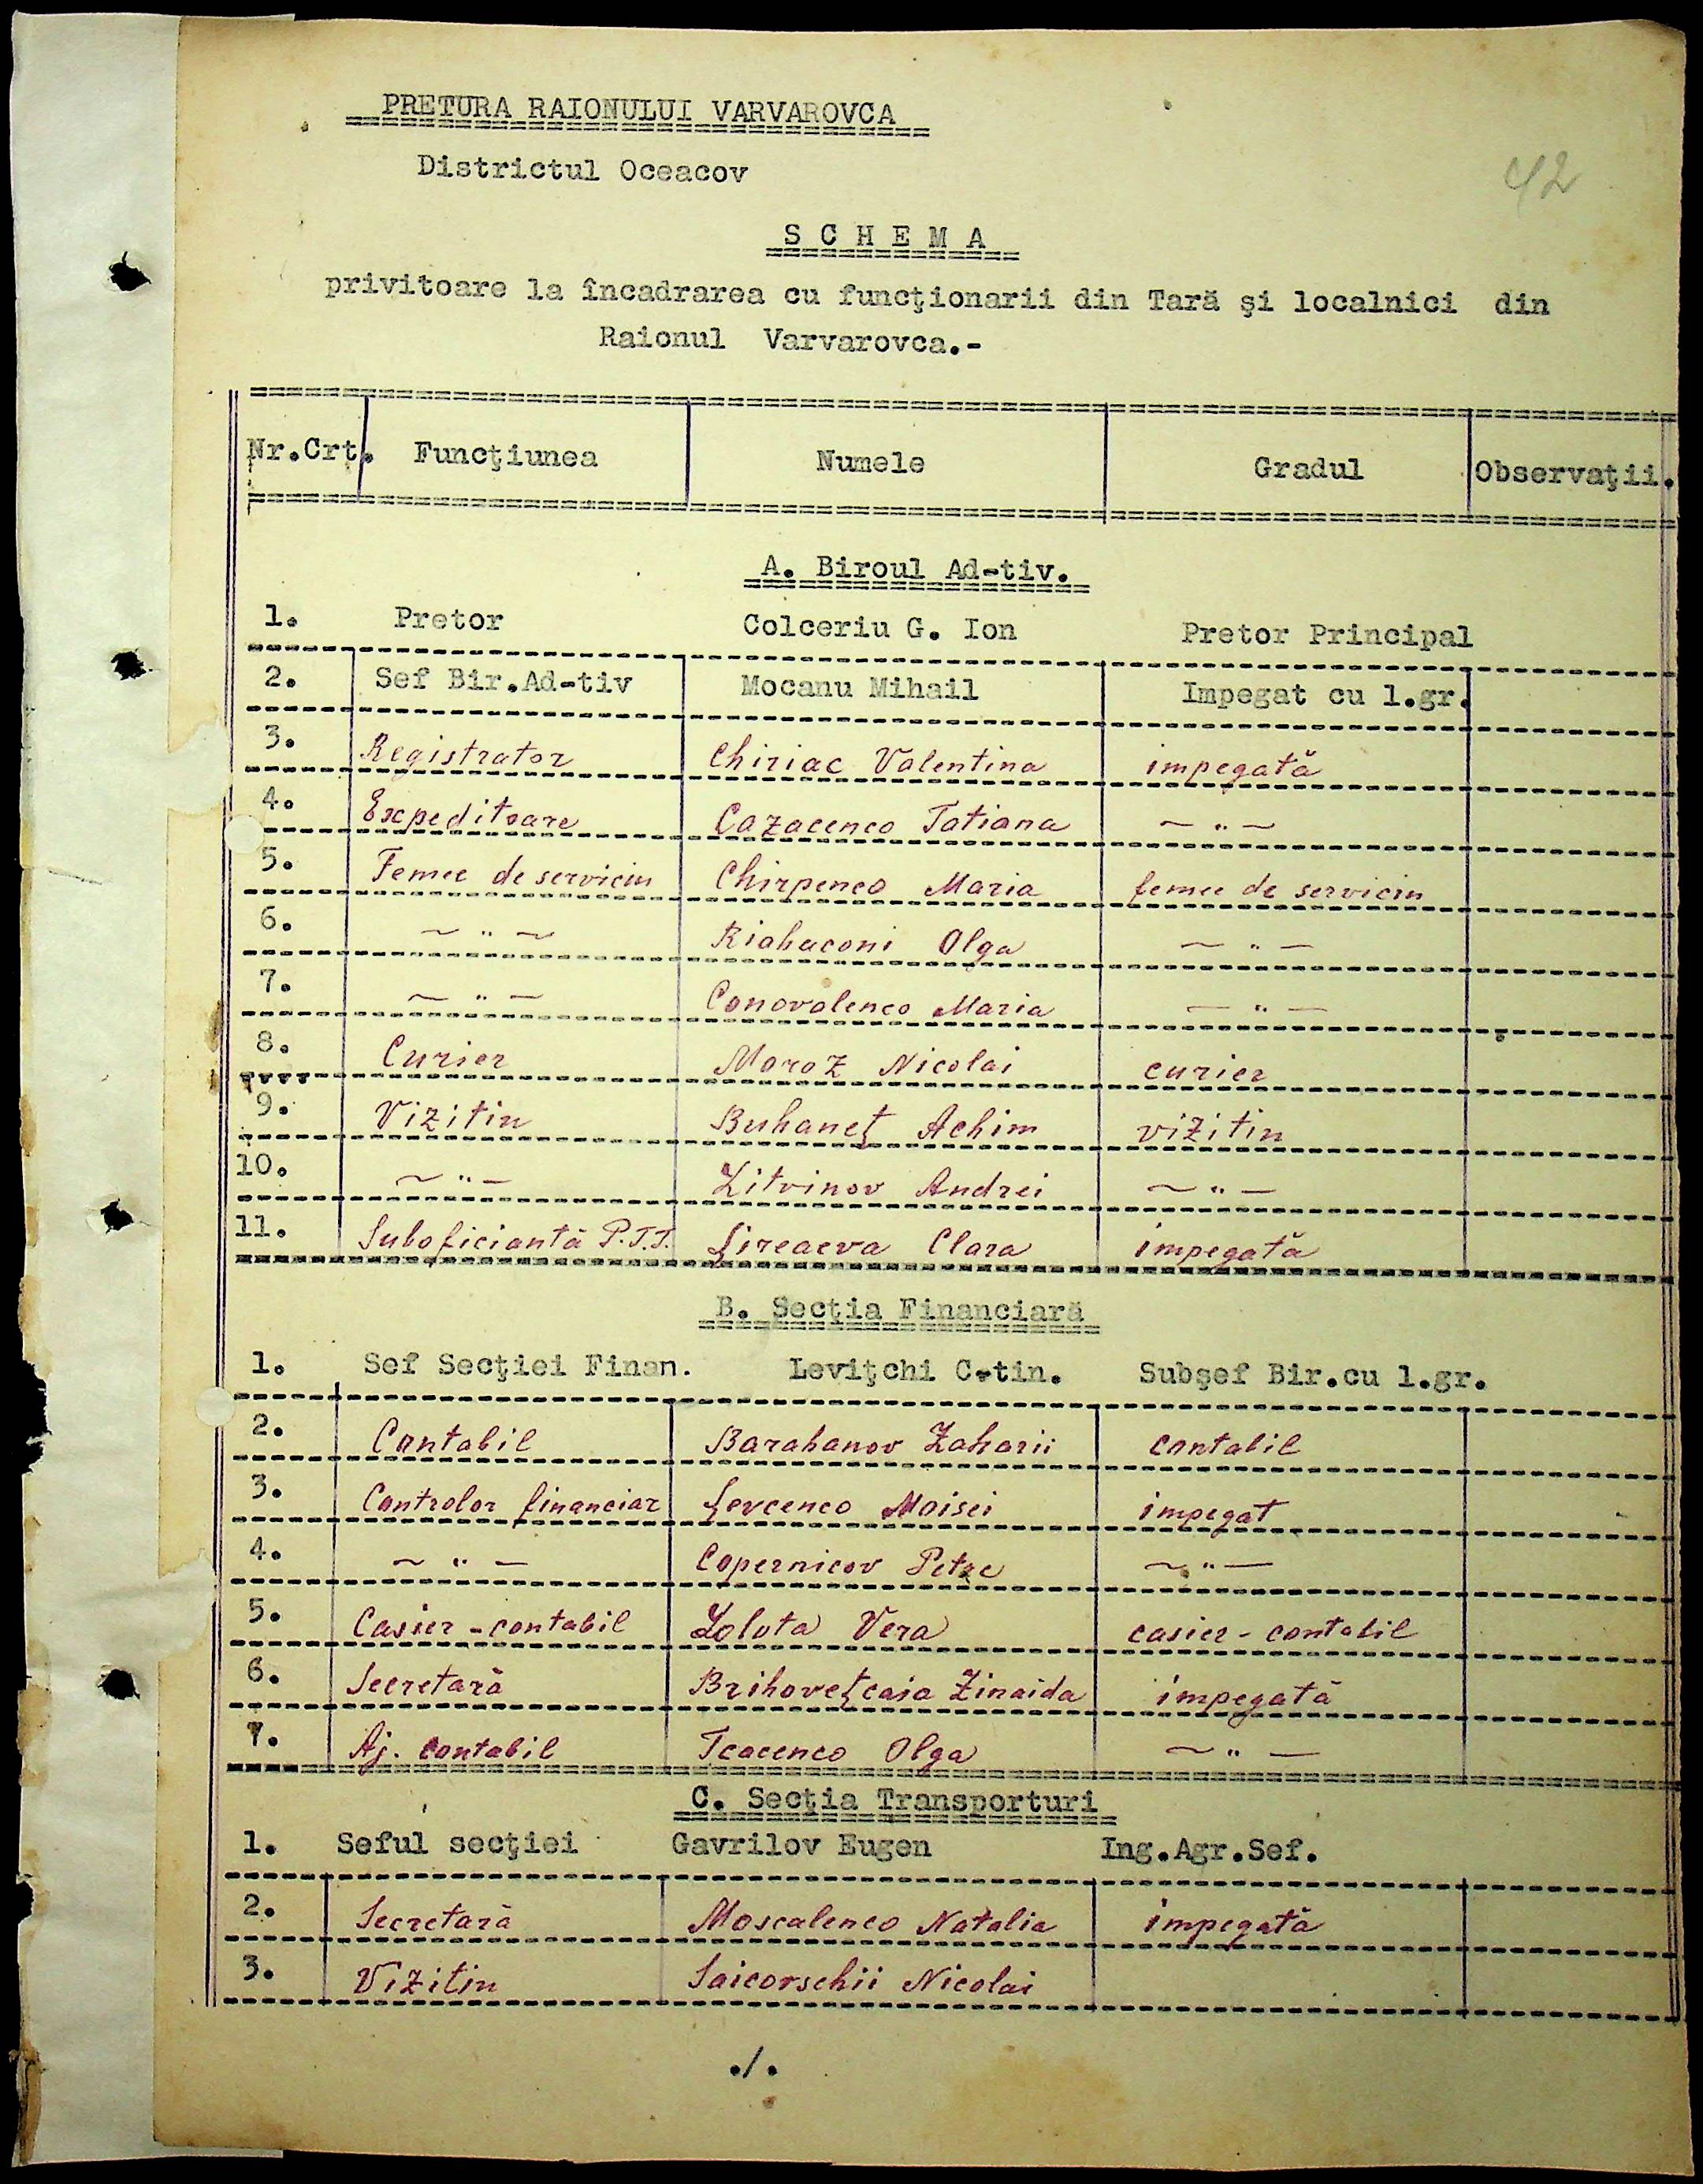 PRETURA RAIONULUI VARVAROVCA
Districtul Oceacov
42
S C H E M A
privitoare la încadrarea cu funcţionarii din Tară şi localnici din
Raionul Varvarovca.-
Nr.Crt. Funcţiunea Numele Gradul Observaţii.
A. Biroul Ad-tiv.
1. Pretor Colceriu G. Ion Pretor Principal
2. Sef Bir.Ad-tiv Mocanu Mihail Impegat cu l.gr.
3. Registrator Chiriac Valentina impegată
4. Expeditoare Cazacenco Tatiana ~ " ~
5. Femee de serviciu Chirpenco Maria femee de serviciu
6. ~ " ~ Riabaconi Olga ~ " —
7. ~ " — Conovalenco Maria — " —
8. Curier Moroz Nicolai curier
9. Vizitiu Buhaneţ Achim vizitiu
10. ~ " — Litvinov Andrei ~ " —
11. Suboficiantă P.T.T. Şireaeva Clara impegată
B. Secţia Financiară
1. Sef Secţiei Finan. Leviţchi C-tin. Subşef Bir.cu l.gr.
2. Contabil Barabanov Zaharii contabil
3. Controlor financiar Şevcenco Moisei impegat
4. ~ " — Copernicov Petre ~ " —
5. Casier - contabil Zolota Vera casier - contabil
6. Secretară Brihoveţcaia Zinaida impegată
7. Aj. contabil Tcacenco Olga ~ " —
C. Secţia Transporturi
1. Seful secţiei Gavrilov Eugen Ing.Agr.Sef.
2. Secretară Moscalenco Natalia impegată
3. Vizitiu Saicorschii Nicolai
./.